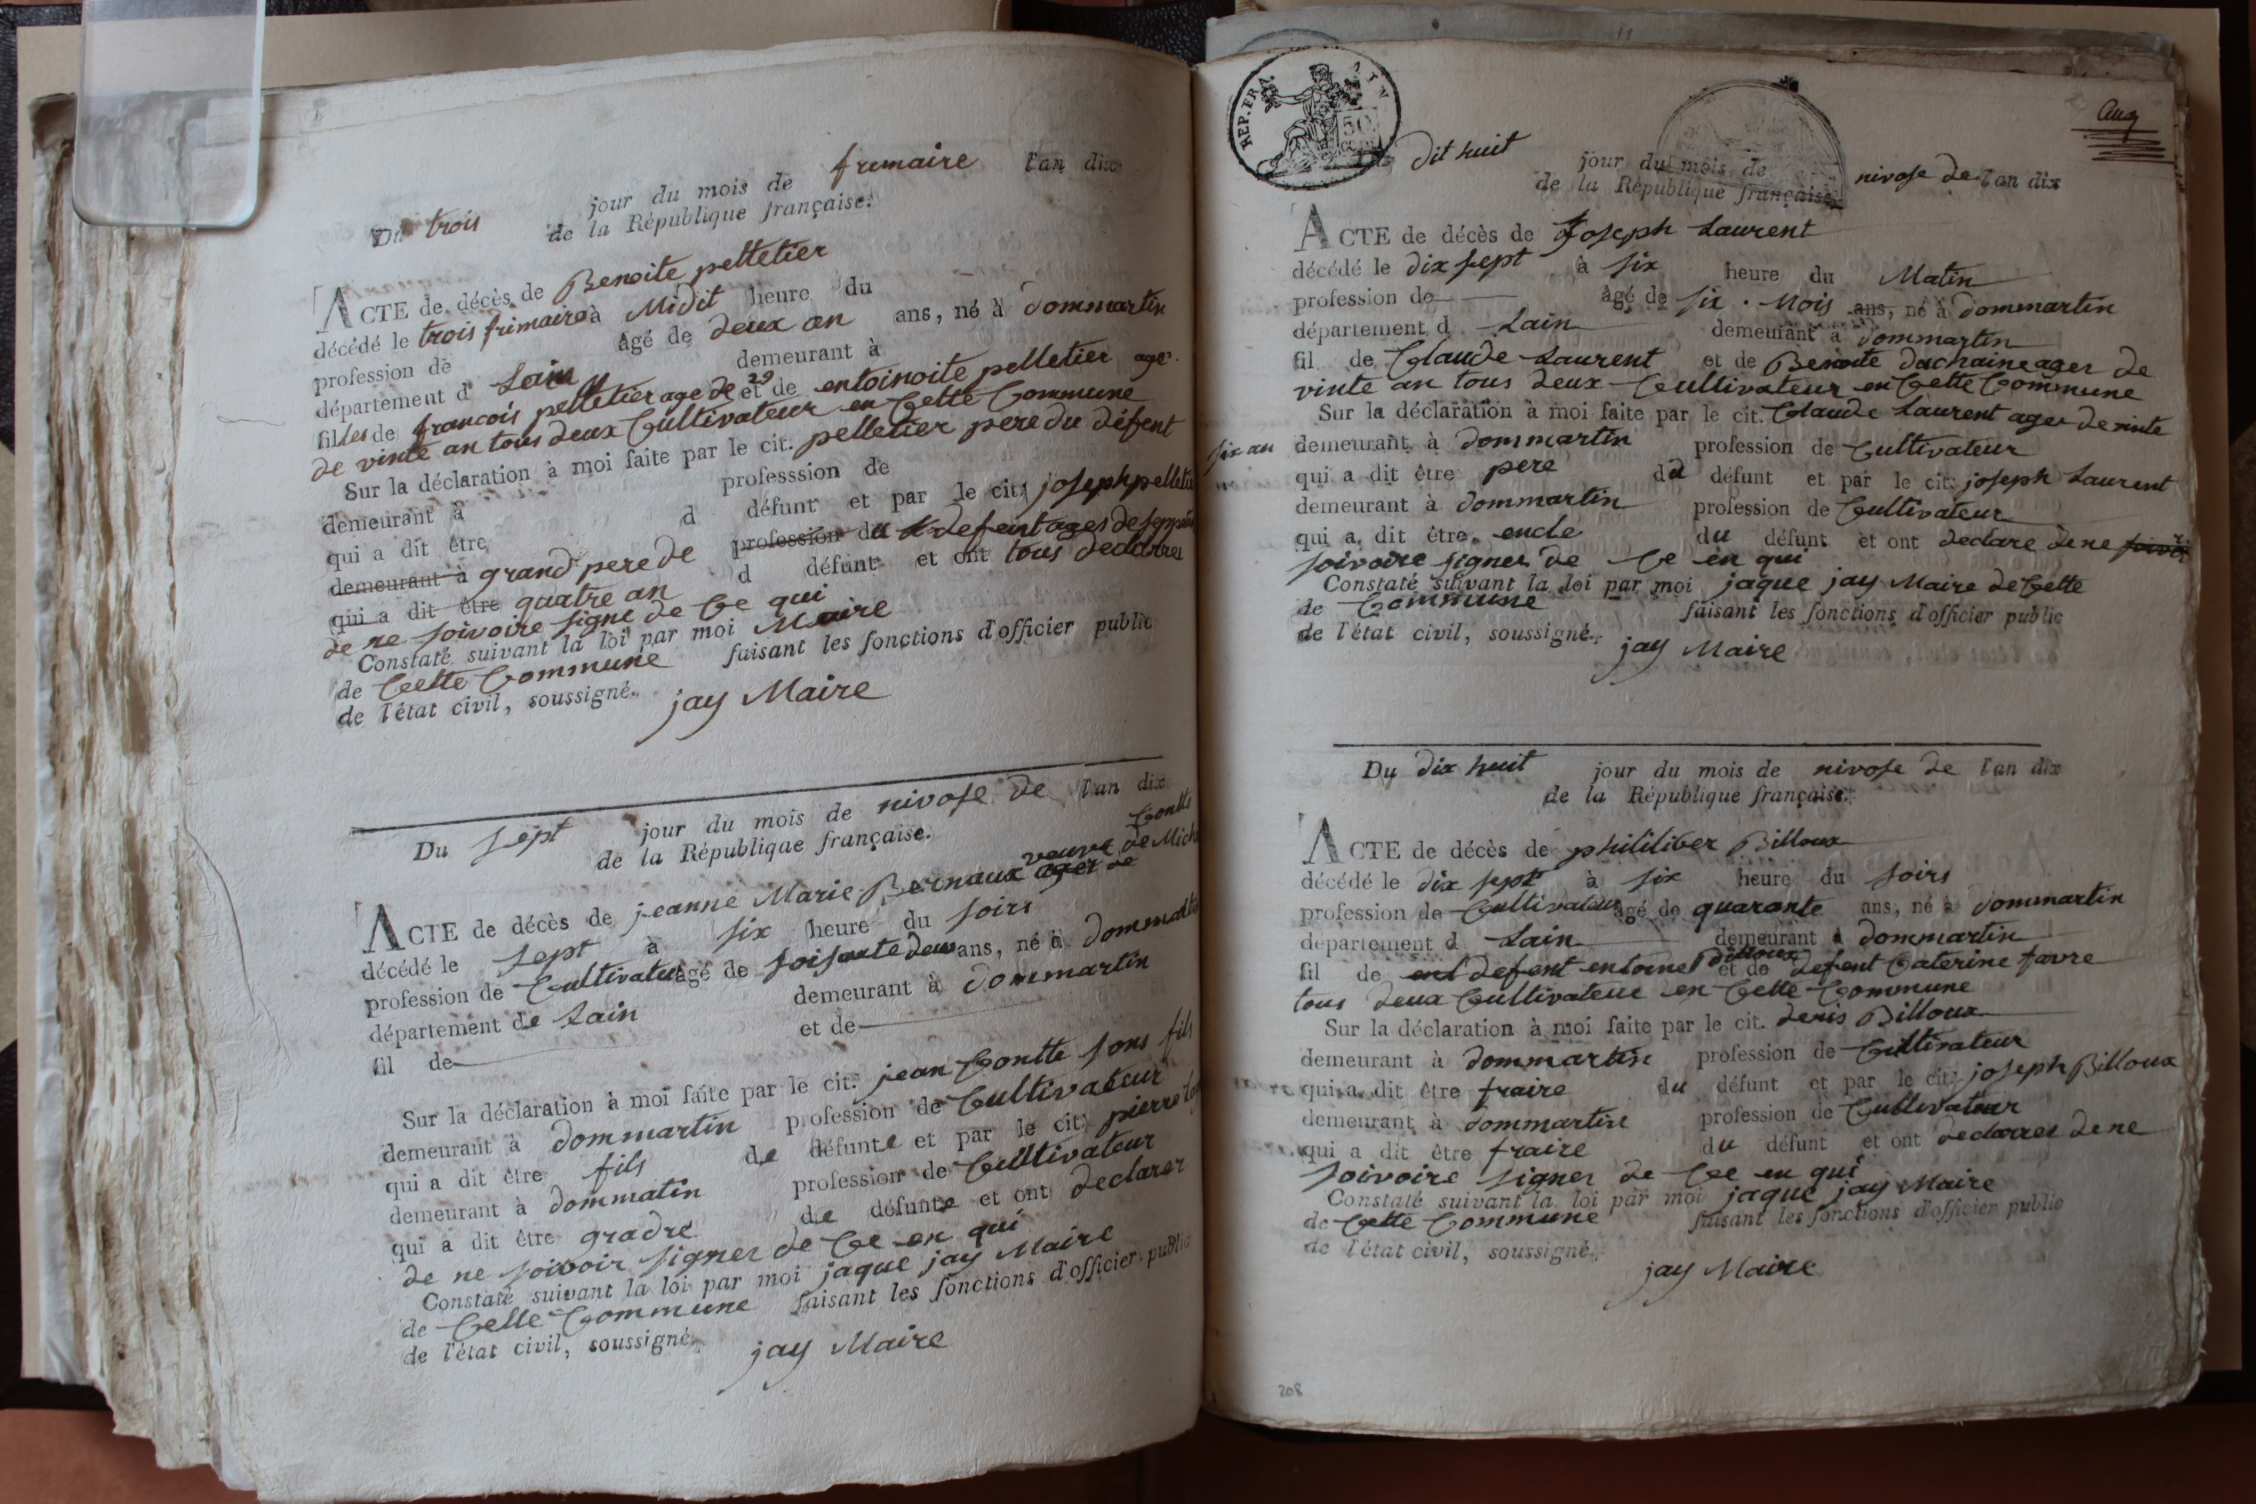 Du trois jour du mois de frimaire l'an dix
de la République française.
ACTE de décès de Benoite pelletier
décédé le trois frimaire à Midit heure du
profession de âgé de deux an ans, né à dommartin
département d Lain demeurant à
filles de francois pelletier age de 29 et de entoinoite pelletier age
de vinte an tous deux Cultivateur en Cette Commune
Sur la déclaration à moi faite par le cit. pelletier pere du défent
demeurant à professsion de
qui a dit être d défunt et par le cit. joseph pelletie
demeurant à grand pere de profession du defent ages de
qui a dit être quatre an d défunt et ont tous declarres
de ne soivoire signe de Ce qui
Constaté suivant la loi par moi Maire
de Cette Commune faisant les fonctions d'officier public
de l'état civil, soussigné. jay Maire
Du sept jour du mois de nivose de l'an dix
de la République française. Contte
veuve de Mich
ACTE de décès de jeanne Marie Bernaux ager de
décédé le sept à six heure du soirs
profession de Cultivateur âgé de soisante deux ans, né à dommatin
département de Lain demeurant à dommartin
fil de et de
Sur la déclaration à moi faite par le cit. jean Contte sons fils
demeurant à dommartin profession de Cultivateur
qui a dit être fils de défunte et par le cit. pierre
demeurant à dommatin profession de Cultivateur
qui a dit être gradre de défunte et ont declarer
de ne soivoir signer de Ce en qui
Constaté suivant la loi par moi jaque jay Maire
de Cette Commune faisant les fonctions d'officier public
de l'état civil, soussigné. jay Maire
REP. FRA.
50
Du dit huit jour du mois de nivose de l'an dix
de la République française.
ACTE de décès de Joseph Laurent
décédé le dix sept à six heure du Matin
profession de âgé de six . Mois ans, né à dommartin
département d Lain demeurant à dommartin
fil de Claude Laurent et de Benoite duchaine ager de
vinte an tous deux Cultivateur en Cette Commune
Sur la déclaration à moi faite par le cit. Claude Laurent ager de vinte
six an demeurant à dommartin profession de Cultivateur
qui a dit être pere du défunt et par le cit. joseph Laurent
demeurant à dommartin profession de Cultivateur
qui a dit être oncle du défunt et ont declare de ne
soivoire signer de Ce en qui
Constaté suivant la loi par moi jaque jay Maire de Cette
de Commune faisant les fonctions d'officier public
de l'état civil, soussigné. jay Maire
Du dix huit jour du mois de nivose de l'an dix
de la République française.
ACTE de décès de phililiber Billoux
décédé le dix sept à six heure du soirs
profession de Cultivateur âgé de quarante ans, né à dommartin
département d Lain demeurant à dommartin
fil de defent entoine Billoux et de defent Caterine favre
tous deux Cultivateur en Cette Commune
Sur la déclaration à moi faite par le cit. denis Billoux
demeurant à dommartin profession de Cultivateur
qui a dit être fraire du défunt et par le cit. joseph Billoux
demeurant à dommartin profession de Cultivateur
qui a dit être fraire du défunt et ont declarrer de ne
soivoire signer de Ce en qui
Constaté suivant la loi par moi jaque jay Maire
de Cette Commune faisant les fonctions d'officier public
de l'état civil, soussigné.
jay Maire
208